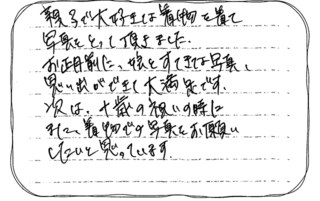 親子で大好きな着物を着て
写真をとって頂きました。
お正月前に、娘とすてきな写真、
思い出ができて大満足です。
次は、十歳の祝いの時に
また、着物での写真をお願い
したいと思っています。